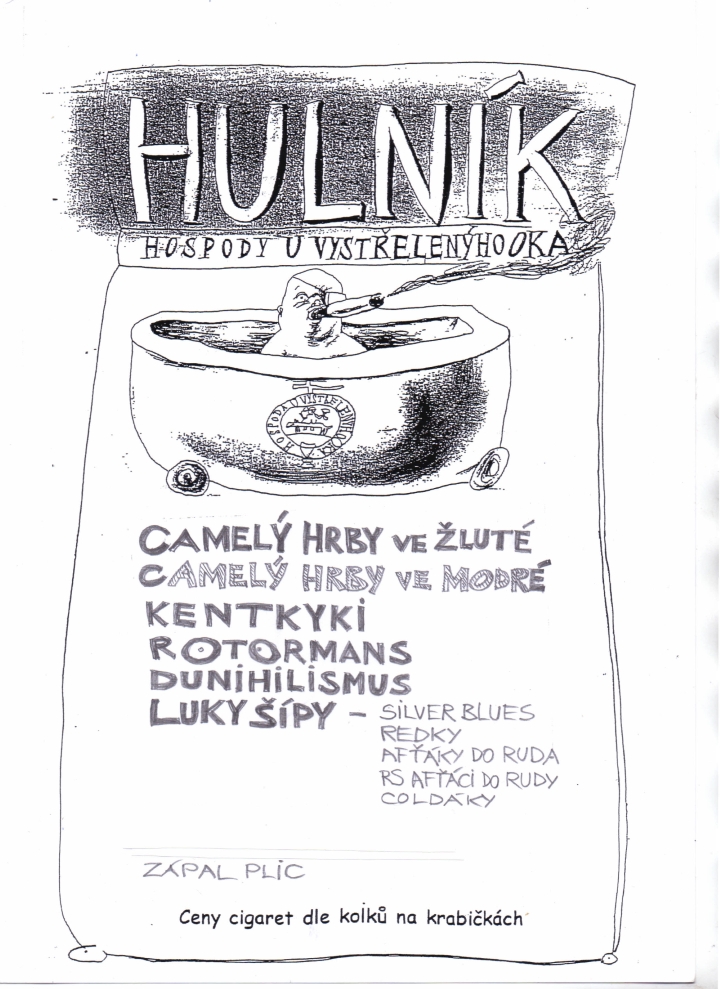 HULNÍK
HOSPODY U VYSTŘELENÝHO OKA
HOSPODA U VYSTŘELENÝHO OKA
CAMELÝ HRBY VE ŽLUTÉ
CAMELÝ HRBY VE MODRÉ
KENTKYKi
ROTORMANS
DUNiHiLiSMUS
LUKY ŠÍPY – SiLVER BLUES
REDKY
AFŤÁKY DO RUDA
RS AFŤÁCi DO RUDY
COLDÁKY
ZÁPAL PLiC
Ceny cigaret dle kolků na krabičkách